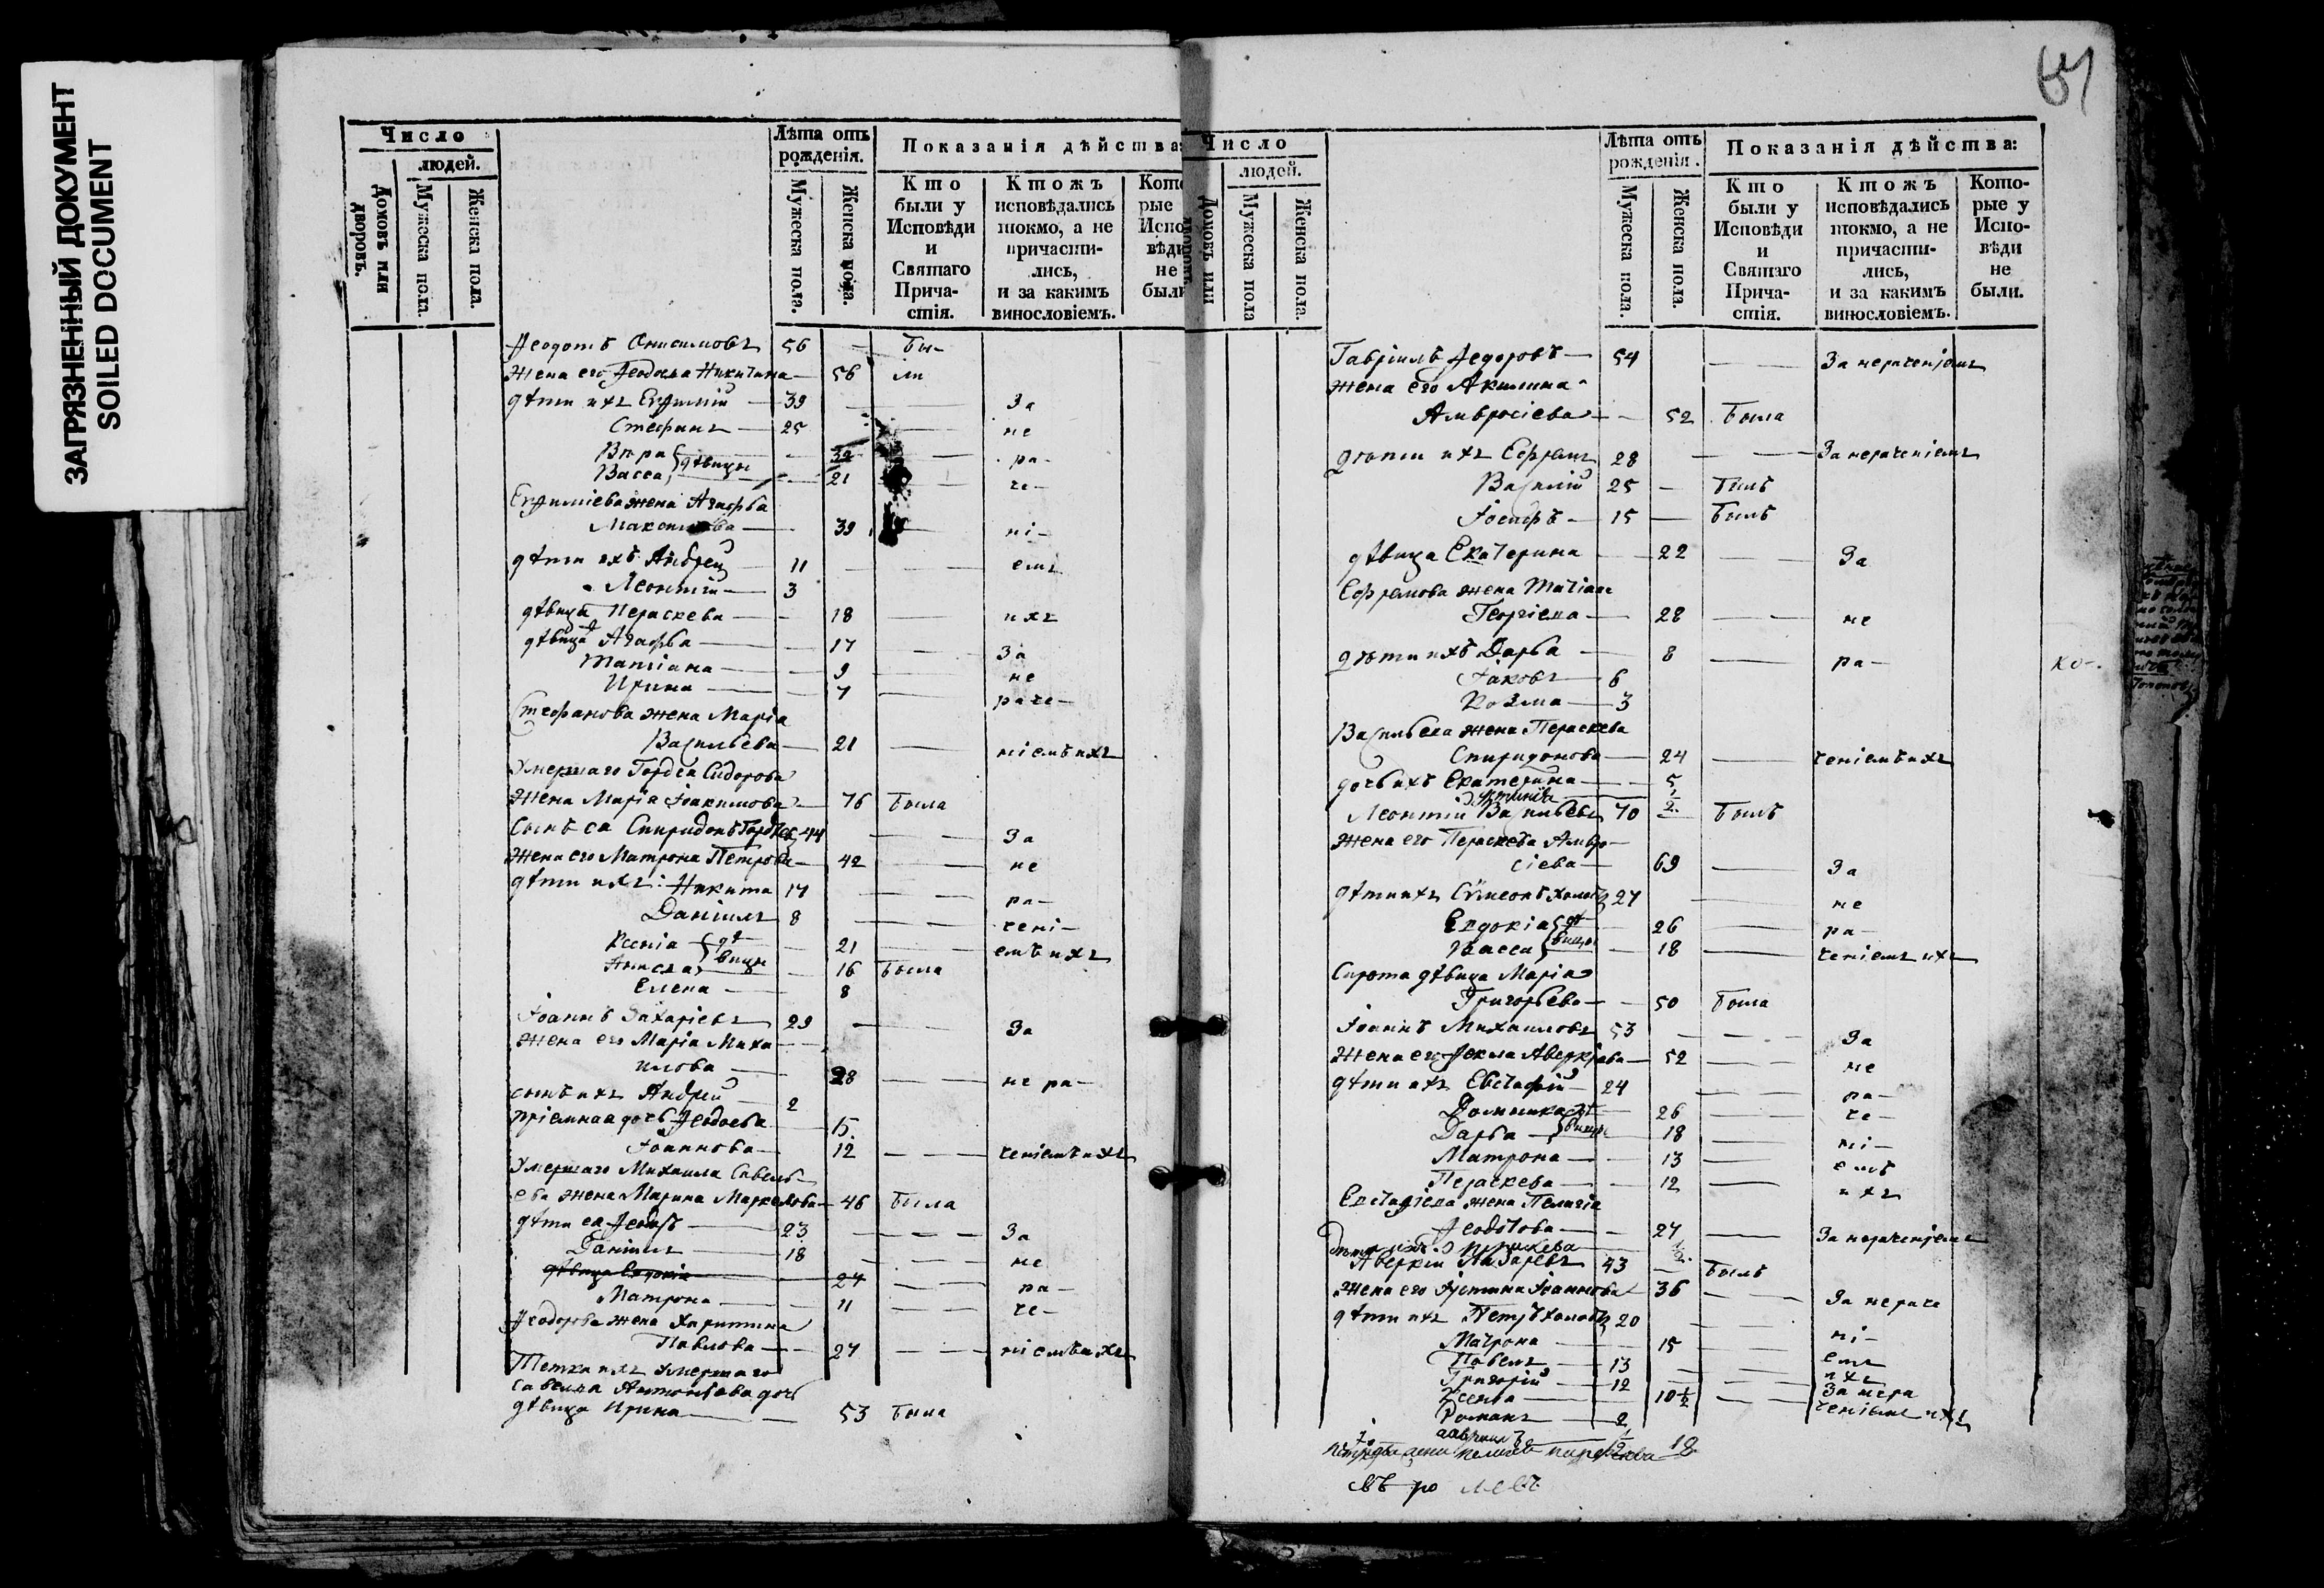 ЗАГРЯЗНЕННЫЙ ДОКУМЕНТ
SOILED DOCUMENT
Число
людей.
Домовъ или дворовъ.
Мужеска пола.
Женска пола.
Лѣта отъ рожденія.
Мужеска пола.
Женска пола.
Показанія дѣйства:
Кто были у Исповѣди и Святаго Прича-стія.
Ктожъ исповѣдались токмо, а не причасти-лись, и за какимъ винословіемъ.
Кото рые Испо вѣди не были
Ѳеодотъ Онисимовъ 56 — бы-
Жена его Ѳеодосіа Никитина — 56 ли
дѣти ихъ Евѳимій — 39 — За
Стефанъ — 25 — не
Вѣра — 32 — ра-
Васса } дѣвицы — 21 — че-
Евѳиміева жена Агафья
Максимова — 39 — ні-
дѣти ихъ Андрей — 11 — емъ
Леонтій — 3
дѣвица Пераскева — 18 — ихъ
дѣвица Агафья — 17 — За
Татіана — 9 — не
Ирина — 7 — раче-
Стефанова жена Маріа
Васильева — 21 — ніемъ ихъ
Умершаго Гордеа Сидорова
жена Маріа Іоакимова — 76 была
Сынъ еа Спиридонъ Гордѣевъ 44 — За
Жена его Матрона Петрова — 42 — не
дѣти ихъ: Никита 17 — ра-
Даніилъ 8 — чені-
Ксеніа } дѣ- — 21 — емъ ихъ
Анисіа } вицы — 16 была
Елена — 8
Іоаннъ Захаріевъ 29 — За
Жена его Маріа Миха-
илова — 28 — не ра-
сынъ ихъ Андрей — 2
пріемнаа дочь Ѳеодосьа 15.
Іоаннова — 12 — ченіемъ ихъ
Умершаго Михаила Савель-
ева жена Марина Маркелова — 46 была
дѣти еа Ѳеодоръ — 23 — За
Даніилъ — 18 — не
дѣвица Евдокіа — 24 — ра-
Матрона — 11 — че-
Ѳеодорова жена Харитина
Павлова — 27 — ніемъ ихъ
Тетка ихъ умершаго
Савелла дочь
дѣвица Ирина — 53 была
Число
людей.
Домовъ или дворовъ.
Мужеска пола
Женска пола.
Лѣта отъ рожденія.
Мужеска пола.
Женска пола.
Показанія дѣйства:
Кто были у Исповѣди и Святаго Прича-стія.
Ктожъ исповѣдались токмо, а не причасти-лись, и за какимъ винословіемъ.
Кото-рые у Испо-вѣди не были.
Гавріилъ Ѳедоровъ — 54 — За нераченіемъ
жена его Акилина
Амвросіева — 52 была
дѣти ихъ Ефремъ 28 — За нераченіемъ
Василій 25 — былъ
Іосифъ — 15 — былъ
дѣвица Екатерина — 22 — За
Ефремова жена Татіана
Георгіева — 28 — не
дѣти ихъ Дарьа — 8 — ра-
Іаковъ — 6
Козма — 3
Васильева жена Пераскева
Спиридонова — 24 — ченіемъ ихъ
дочь ихъ Екатерина — 5
Леонтій Васильевъ 70 — былъ
жена его Пераскева Амвро-
сіева — 69 — За
дѣти ихъ Симеонъ холостъ 27 — не
Евдокіа } дѣ- 26 — ра-
Васса } вицы 18 — ченіемъ ихъ
Сирота дѣвица Маріа
Григорьева — 50 была
Іоаннъ Михаиловъ 53 — За
жена его Ѳекла Аверкіева — 52 — не
дѣти ихъ Евстафій — 24 — ра-
Домника } дѣ- 26 — че-
Дарьа } вицы 18 — ні-
Матрона — 13 — емъ
Пераскева — 12 — ихъ
Евстафіева жена Пелагіа
Ѳеодотова — 27 — За нераченіемъ
Аверкій Лазаревъ 43 — былъ
Жена его Іустина Іоаннова 36 — За нераче
дѣти ихъ Петръ холостъ 20 — ні-
Матрона — 15 — емъ
Павелъ — 13 — ихъ
Григорій — 12 — За нера
Ксеніа — 10 1/2 — ченіемъ ихъ
Романъ — 2